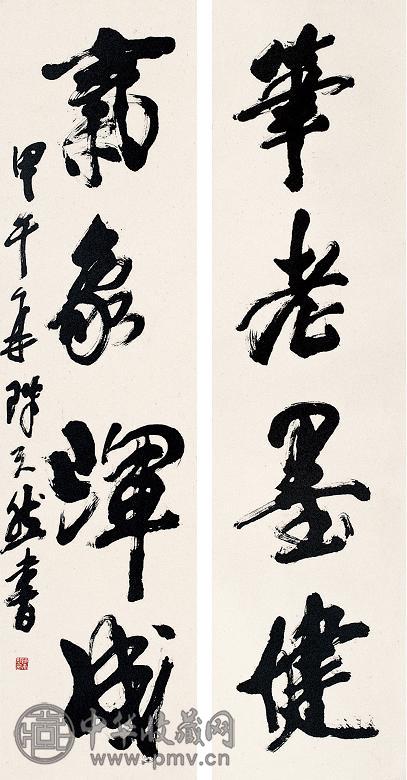 筆老墨健
氣象渾成
甲午年陈天然書
中华收藏网
www.pmv.cn